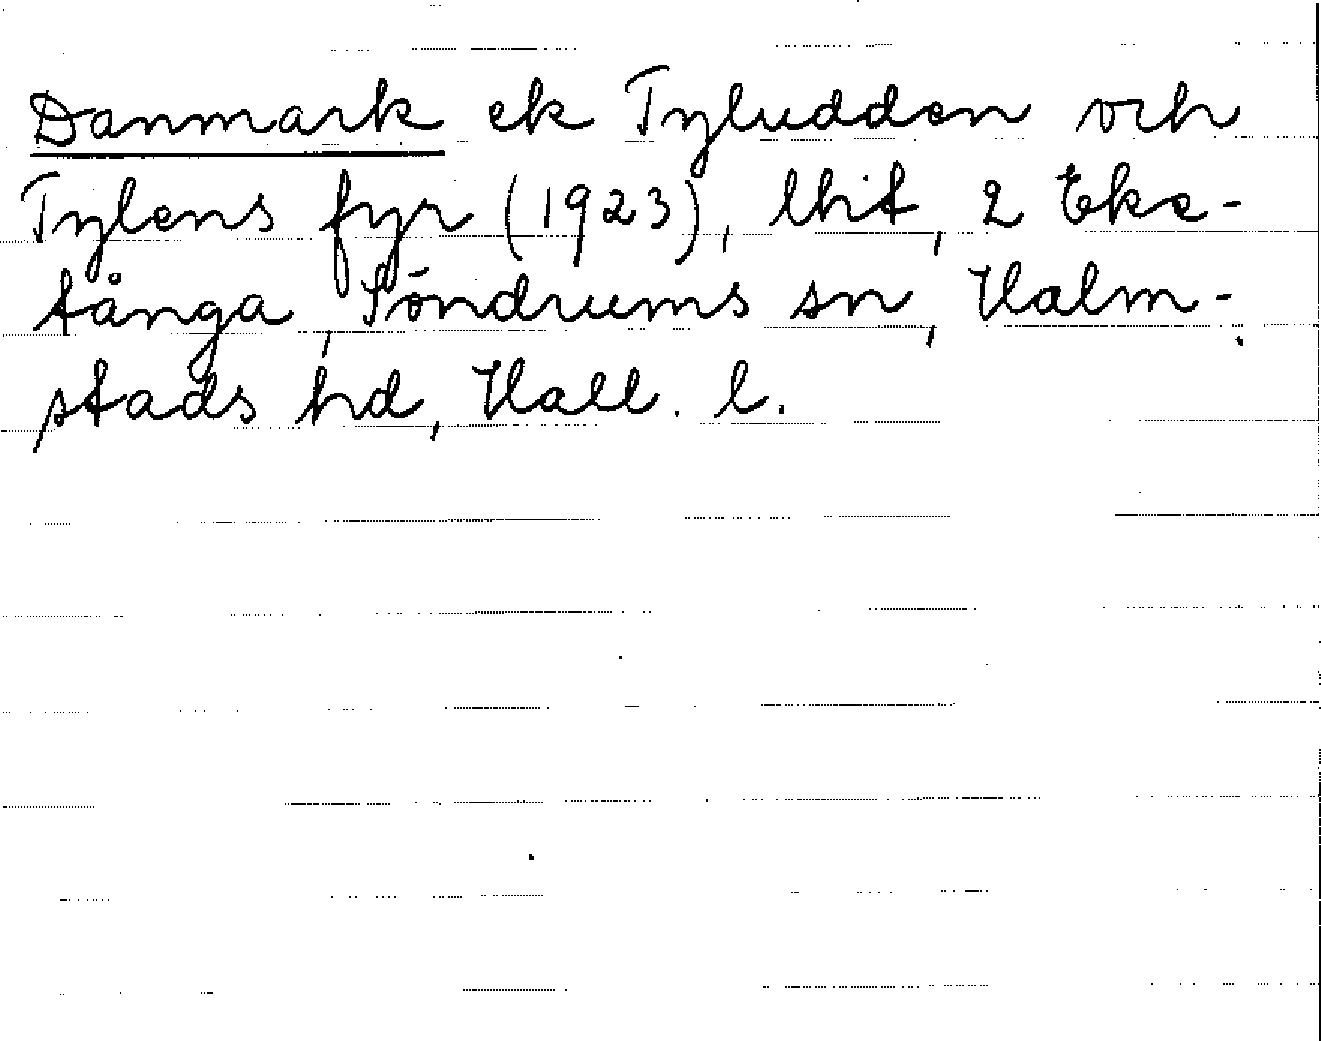 Danmark ek Tyludden och
Tylens fyr (1923), lhit, 2 Eke-
tånga, Söndrums sn, Halm-
stads hd, Hall. l.